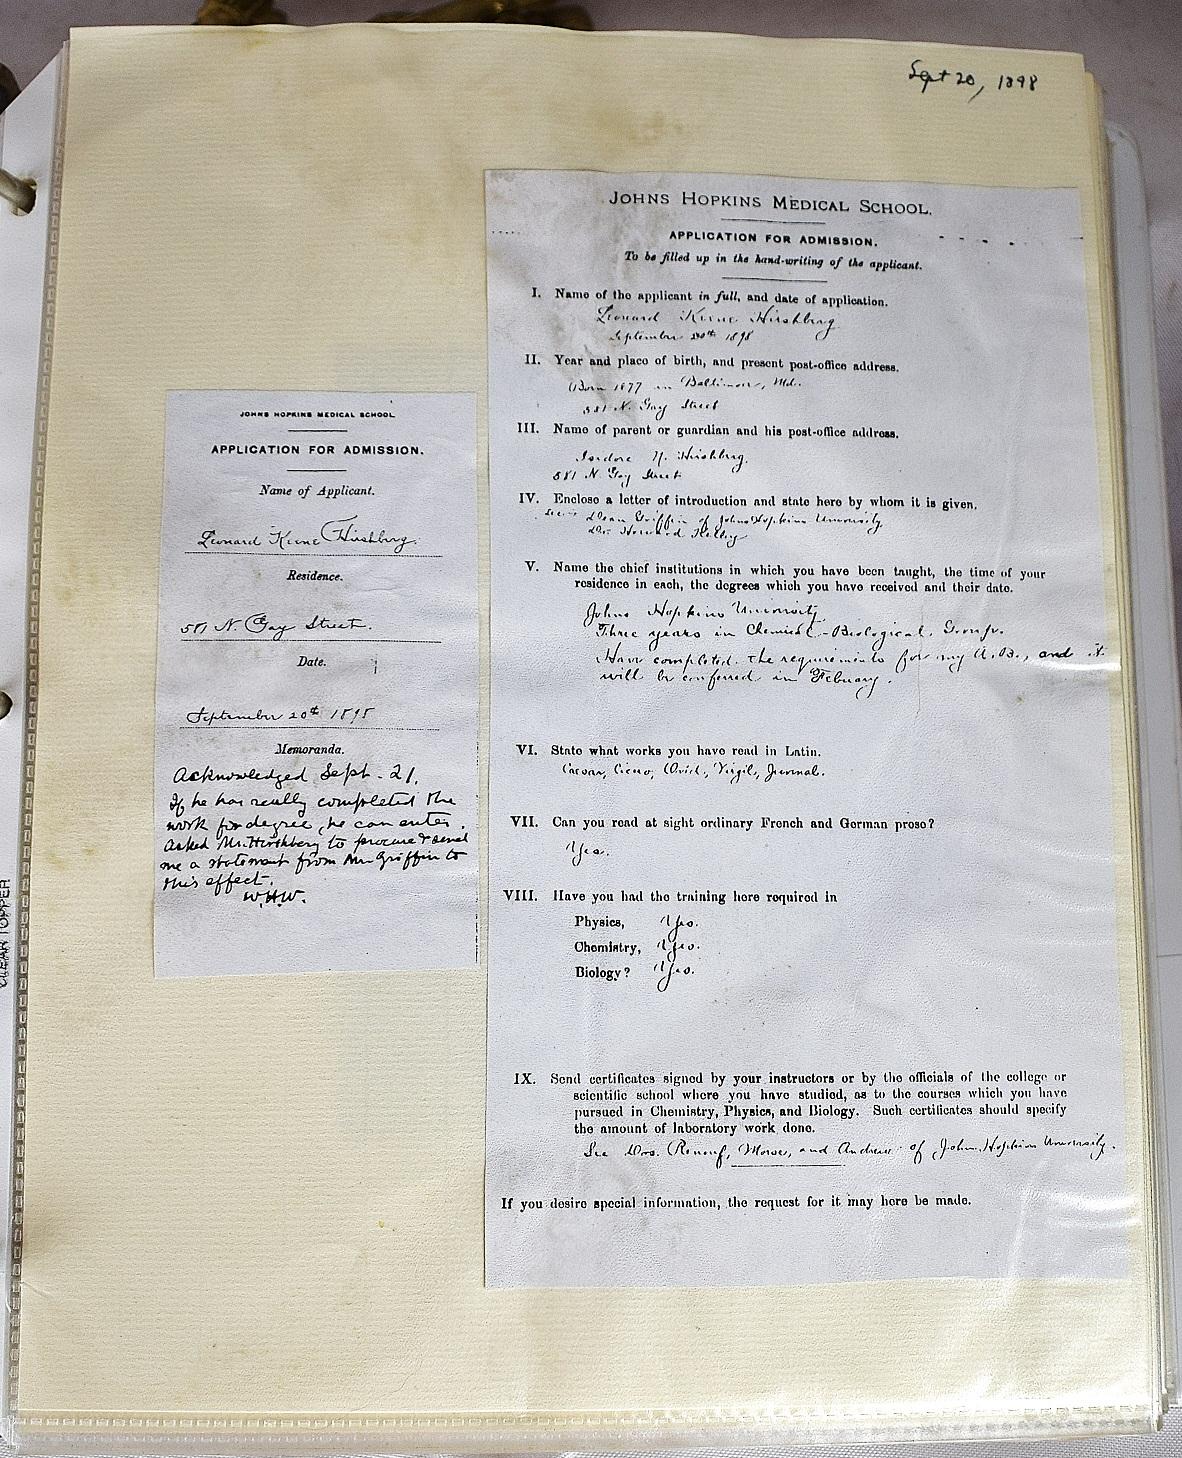 Sept 20, 1898
JOHNS HOPKINS MEDICAL SCHOOL.
APPLICATION FOR ADMISSION.
Name of Applicant.
Leonard Keene Hirshberg.
Residence.
581 N. Gay Street.
Date.
September 20th 1898
Memoranda.
Acknowledged Sept. 21.
If he has really completed the
work for degree, he can enter.
Asked Mr. Hirshberg to procure & send
me a statement from Mr. Griffin to
this effect.
W.H.W.
JOHNS HOPKINS MEDICAL SCHOOL.
APPLICATION FOR ADMISSION.
To be filled up in the hand-writing of the applicant.
I. Name of the applicant in full, and date of application.
Leonard Keene Hirshberg
September 20th 1898
II. Year and place of birth, and present post-office address.
Born 1877 in Baltimore, Md.
581 N. Gay Street
III. Name of parent or guardian and his post-office address.
Isidore H. Hirshberg.
581 N. Gay Street
IV. Enclose a letter of introduction and state here by whom it is given.
Dean Griffin of Johns Hopkins University
Dr. Howard Kelly
V. Name the chief institutions in which you have been taught, the time of your
residence in each, the degrees which you have received and their date.
Johns Hopkins University
Three years in Chemical-Biological Group.
Have completed the requirements for my A.B., and it
will be conferred in Febuary.
VI. State what works you have read in Latin.
Caesar, Cicero, Ovid, Virgil, Juvenal.
VII. Can you read at sight ordinary French and German prose?
Yes.
VIII. Have you had the training here required in
Physics, Yes.
Chemistry, Yes.
Biology? Yes.
IX. Send certificates signed by your instructors or by the officials of the college or
scientific school where you have studied, as to the courses which you have
pursued in Chemistry, Physics, and Biology. Such certificates should specify
the amount of laboratory work done.
See Drs. Renouf, Morse, and Andrews of Johns Hopkins University.
If you desire special information, the request for it may here be made.
CLEAR TOPPER